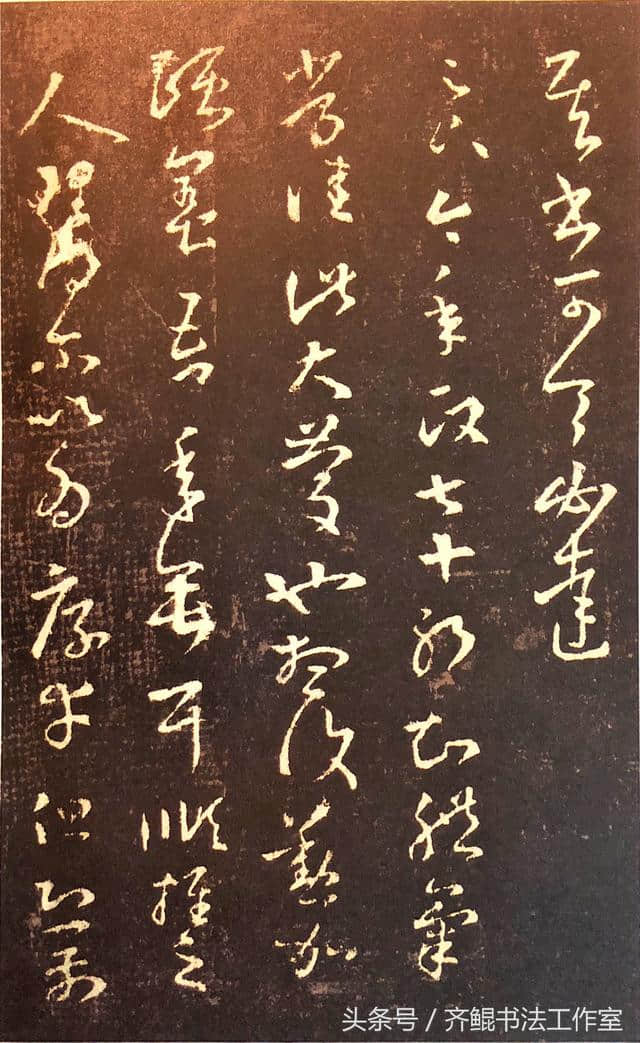 其書可令必達
足下今年政七十耶知體氣
常佳此大慶也想復懃加
頤養吾年垂耳順推之
人理得爾以為厚幸但恐前
头条号 / 齐鲲书法工作室